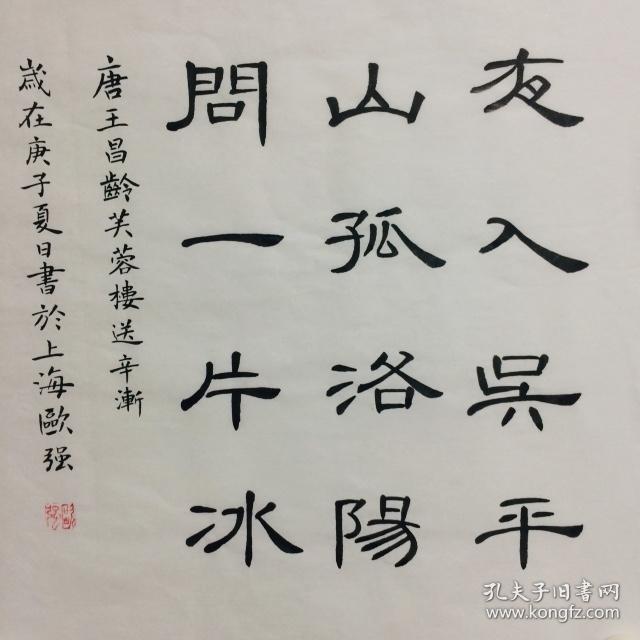 夜入吳平
山孤洛陽
問一片冰
唐王昌齡芙蓉樓送辛漸
歲在庚子夏日書於上海歐强
孔夫子旧书网
www.kongfz.com